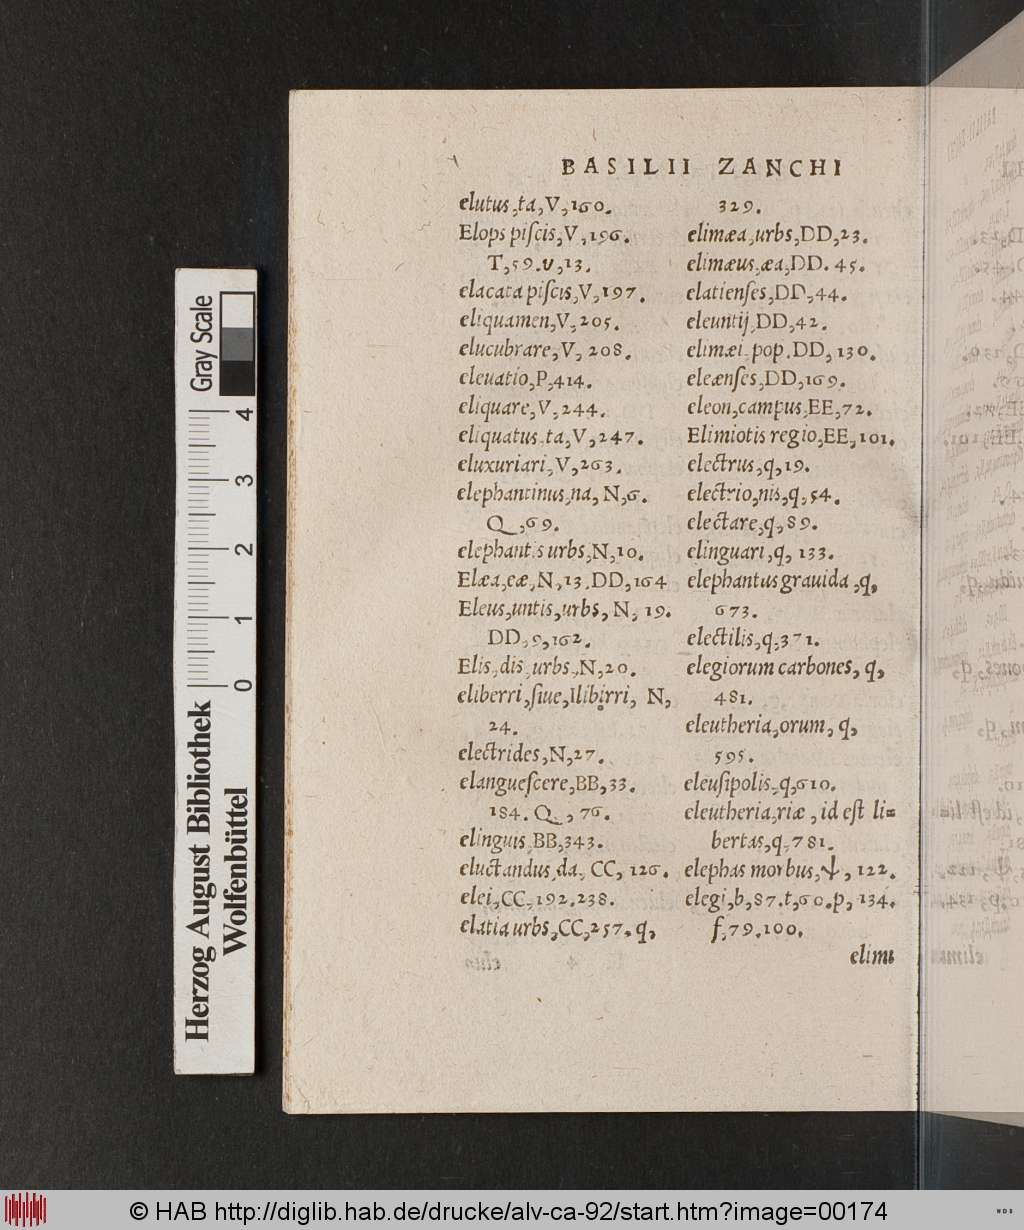 BASILII ZANCHI
elutus,ta,V,160.
Elops piſcis,V,196.
T,59.v,13.
elacata piſcis,V,197.
eliquamen,V,205.
elucubrare,V,208.
eleuatio,P,414.
eliquare,V,244.
eliquatus,ta,V,247.
eluxuriari,V,263.
elephantinus,na, N,6.
Q,69.
elephantis urbs,N,10.
Elæa,eæ,N,13.DD,164
Eleus,untis,urbs, N, 19.
DD,9,162.
Elis,dis,urbs,N,20.
eliberri,ſiue,Ilibirri, N,
24.
electrides,N,27.
elangueſcere,BB,33.
184. Q, 76.
elinguis,BB,343.
eluctandus,da, CC, 126.
elei,CC,192.238.
elatia urbs,CC,257.q,
329.
elimæa,urbs,DD,23.
elimæus,æa,DD. 45.
elatienſes,DD,44.
eleuntij,DD,42.
elimæi,pop.DD,130.
eleænſes,DD,169.
eleon,campus,EE,72.
Elimiotis regio,EE,101.
electrus,q,19.
electrio,nis,q,54.
electare,q,89.
elinguari,q, 133.
elephantus grauida,q,
673.
electilis,q,371.
elegiorum carbones, q,
481.
eleutheria,orum, q,
595.
eleuſipolis,q,610.
eleutheria,riæ, id eſt li=
bertas,q,781.
elephas morbus,ψ, 122.
elegi,b,87.t,60.p,134.
f,79.100.
elimi
Gray Scale
4
3
2
1
0
Herzog August Bibliothek
Wolfenbüttel
© HAB http://diglib.hab.de/drucke/alv-ca-92/start.htm?image=00174